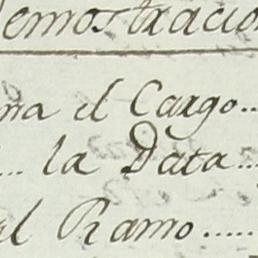 emostracio
ma el Cargo..
... la Data...
el Ramo.....